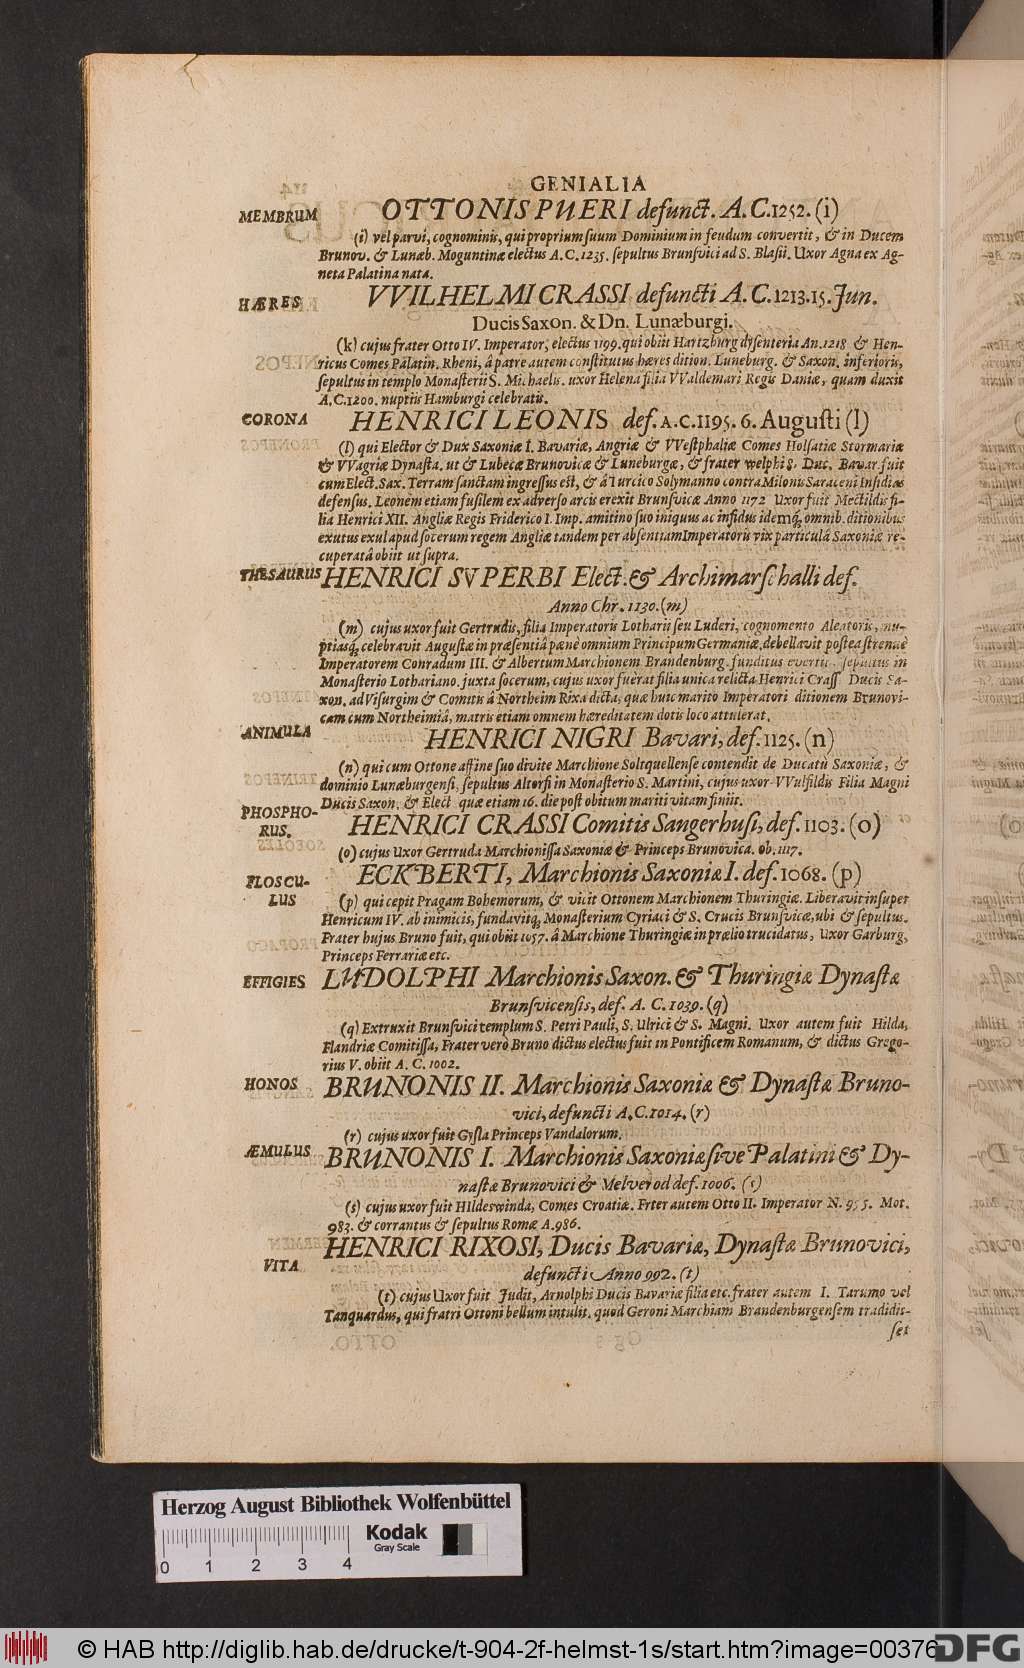 GENIALIA
MEMBRUM OTTONIS PUERI defunct. A.C.1252. (i)
(i) vel parvi, cognominis, qui proprium suum Dominium in feudum convertit, & in Ducem
Brunov. & Lunæb. Moguntinæ electus A.C.1235. sepultus Brunsvici ad S. Blasii. Uxor Agna ex Ag-
neta Palatina nata.
HÆRES VVILHELMI CRASSI defuncti A.C.1213.15. Jun.
Ducis Saxon. & Dn. Lunæburgi.
(k) cujus frater Otto IV. Imperator, electus 1199. qui obiit Hartzburg dysenteria An.1218 & Hen-
ricus Comes Palatin. Rheni, â patre autem constitutus hæres dition. Luneburg. & Saxon. inferioris,
sepultus in templo Monasterii S. Michaelis. uxor Helena filia VValdemari Regis Daniæ, quam duxit
A.C.1200. nuptiis Hamburgi celebratis.
CORONA HENRICI LEONIS def. A.C.1195. 6. Augusti (l)
(l) qui Elector & Dux Saxoniæ I. Bavariæ, Angriæ & VVestphaliæ Comes Holsatiæ Stormariæ
& VVagriæ Dynasta. ut & Lubecæ Brunovicæ & Luneburgæ, & frater welphi 8. Duc. Bavar. fuit
cum Elect. Sax. Terram sanctam ingressus est, & â Turcico Solymanno contra Milonis Saraceni Insidias
defensus. Leonem etiam fusilem ex adverso arcis erexit Brunsvicæ Anno 1172 Uxor fuit Mectildis fi-
lia Henrici XII. Angliæ Regis Friderico I. Imp. amitino suo iniquus ac infidus idemq́; omnib. ditionibus
exutus exul apud socerum regem Angliæ tandem per absentiam Imperatoris vix particulâ Saxoniæ re-
cuperatâ obiit ut supra.
THESAURUS HENRICI SVPERBI Elect. & Archimarschalli def.
Anno Chr. 1130. (m)
(m) cujus uxor fuit Gertrudis, filia Imperatoris Lotharii seu Luderi, cognomento Aleatoris, nu-
ptiasq́; celebravit Augustæ in præsentiâ pæne omnium Principum Germaniæ, debellavit postea strenuè
Imperatorem Conradum III. & Albertum Marchionem Brandenburg. funditus evertit, sepultus in
Monasterio Lothariano. juxta socerum, cujus uxor fuerat filia unica relicta Henrici Crass. Ducis Sa-
xon. ad Visurgim & Comitis â Northeim Rixa dicta, quæ huic marito Imperatori ditionem Brunovi-
cam cum Northeimiâ, matris etiam omnem hæreditatem dotis loco attulerat.
ANIMULA HENRICI NIGRI Bavari, def. 1125. (n)
(n) qui cum Ottone affine suo divite Marchione Soltquellense contendit de Ducatu Saxoniæ, &
dominio Lunæburgensi, sepultus Altorsi in Monasterio S. Martini, cujus uxor VVulfildis Filia Magni
Ducis Saxon. & Elect quæ etiam 16. die post obitum mariti vitam finiit.
PHOSPHO-
RUS. HENRICI CRASSI Comitis Sangerhusi, def. 1103. (o)
(o) cujus Uxor Gertruda Marchionissa Saxoniæ & Princeps Brunovica. ob. 1117.
FLOSCU-
LUS ECKBERTI, Marchionis Saxoniæ I. def. 1068. (p)
(p) qui cepit Pragam Bohemorum, & vicit Ottonem Marchionem Thuringiæ. Liberavit insuper
Henricum IV. ab inimicis, fundavitq́; Monasterium Cyriaci & S. Crucis Brunsvicæ, ubi & sepultus.
Frater hujus Bruno fuit, qui obiit 1057. â Marchione Thuringiæ in prælio trucidatus, Uxor Garburg,
Princeps Ferrariæ etc.
EFFIGIES LUDOLPHI Marchionis Saxon. & Thuringiæ Dynastæ
Brunsvicensis, def. A. C. 1039. (q)
(q) Extruxit Brunsvici templum S. Petri Pauli, S. Ulrici & S. Magni. Uxor autem fuit Hilda,
Flandriæ Comitissa, Frater verò Bruno dictus electus fuit in Pontificem Romanum, & dictus Grego-
rius V. obiit A. C. 1002.
HONOS BRUNONIS II. Marchionis Saxoniæ & Dynastæ Bruno-
vici, defuncti A.C.1014. (r)
(r) cujus uxor fuit Gysla Princeps Vandalorum.
ÆMULUS BRUNONIS I. Marchionis Saxoniæ sive Palatini & Dy-
nastæ Brunovici & Melverod def. 1006. (s)
(s) cujus uxor fuit Hildeswinda, Comes Croatiæ. Frter autem Otto II. Imperator N. 955. Mot.
983. & corrantus & sepultus Romæ A.986.
VITA HENRICI RIXOSI, Ducis Bavariæ, Dynastæ Brunovici,
defuncti Anno 992. (t)
(t) cujus Uxor fuit Judit, Arnolphi Ducis Bavariæ filia etc. frater autem I. Tarumo vel
Tanquardus, qui fratri Ottoni bellum intulit. quod Geroni Marchiam Brandenburgensem tradidis-
set
Herzog August Bibliothek Wolfenbüttel
Kodak
Gray Scale
0 1 2 3 4
© HAB http://diglib.hab.de/drucke/t-904-2f-helmst-1s/start.htm?image=00376
DFG